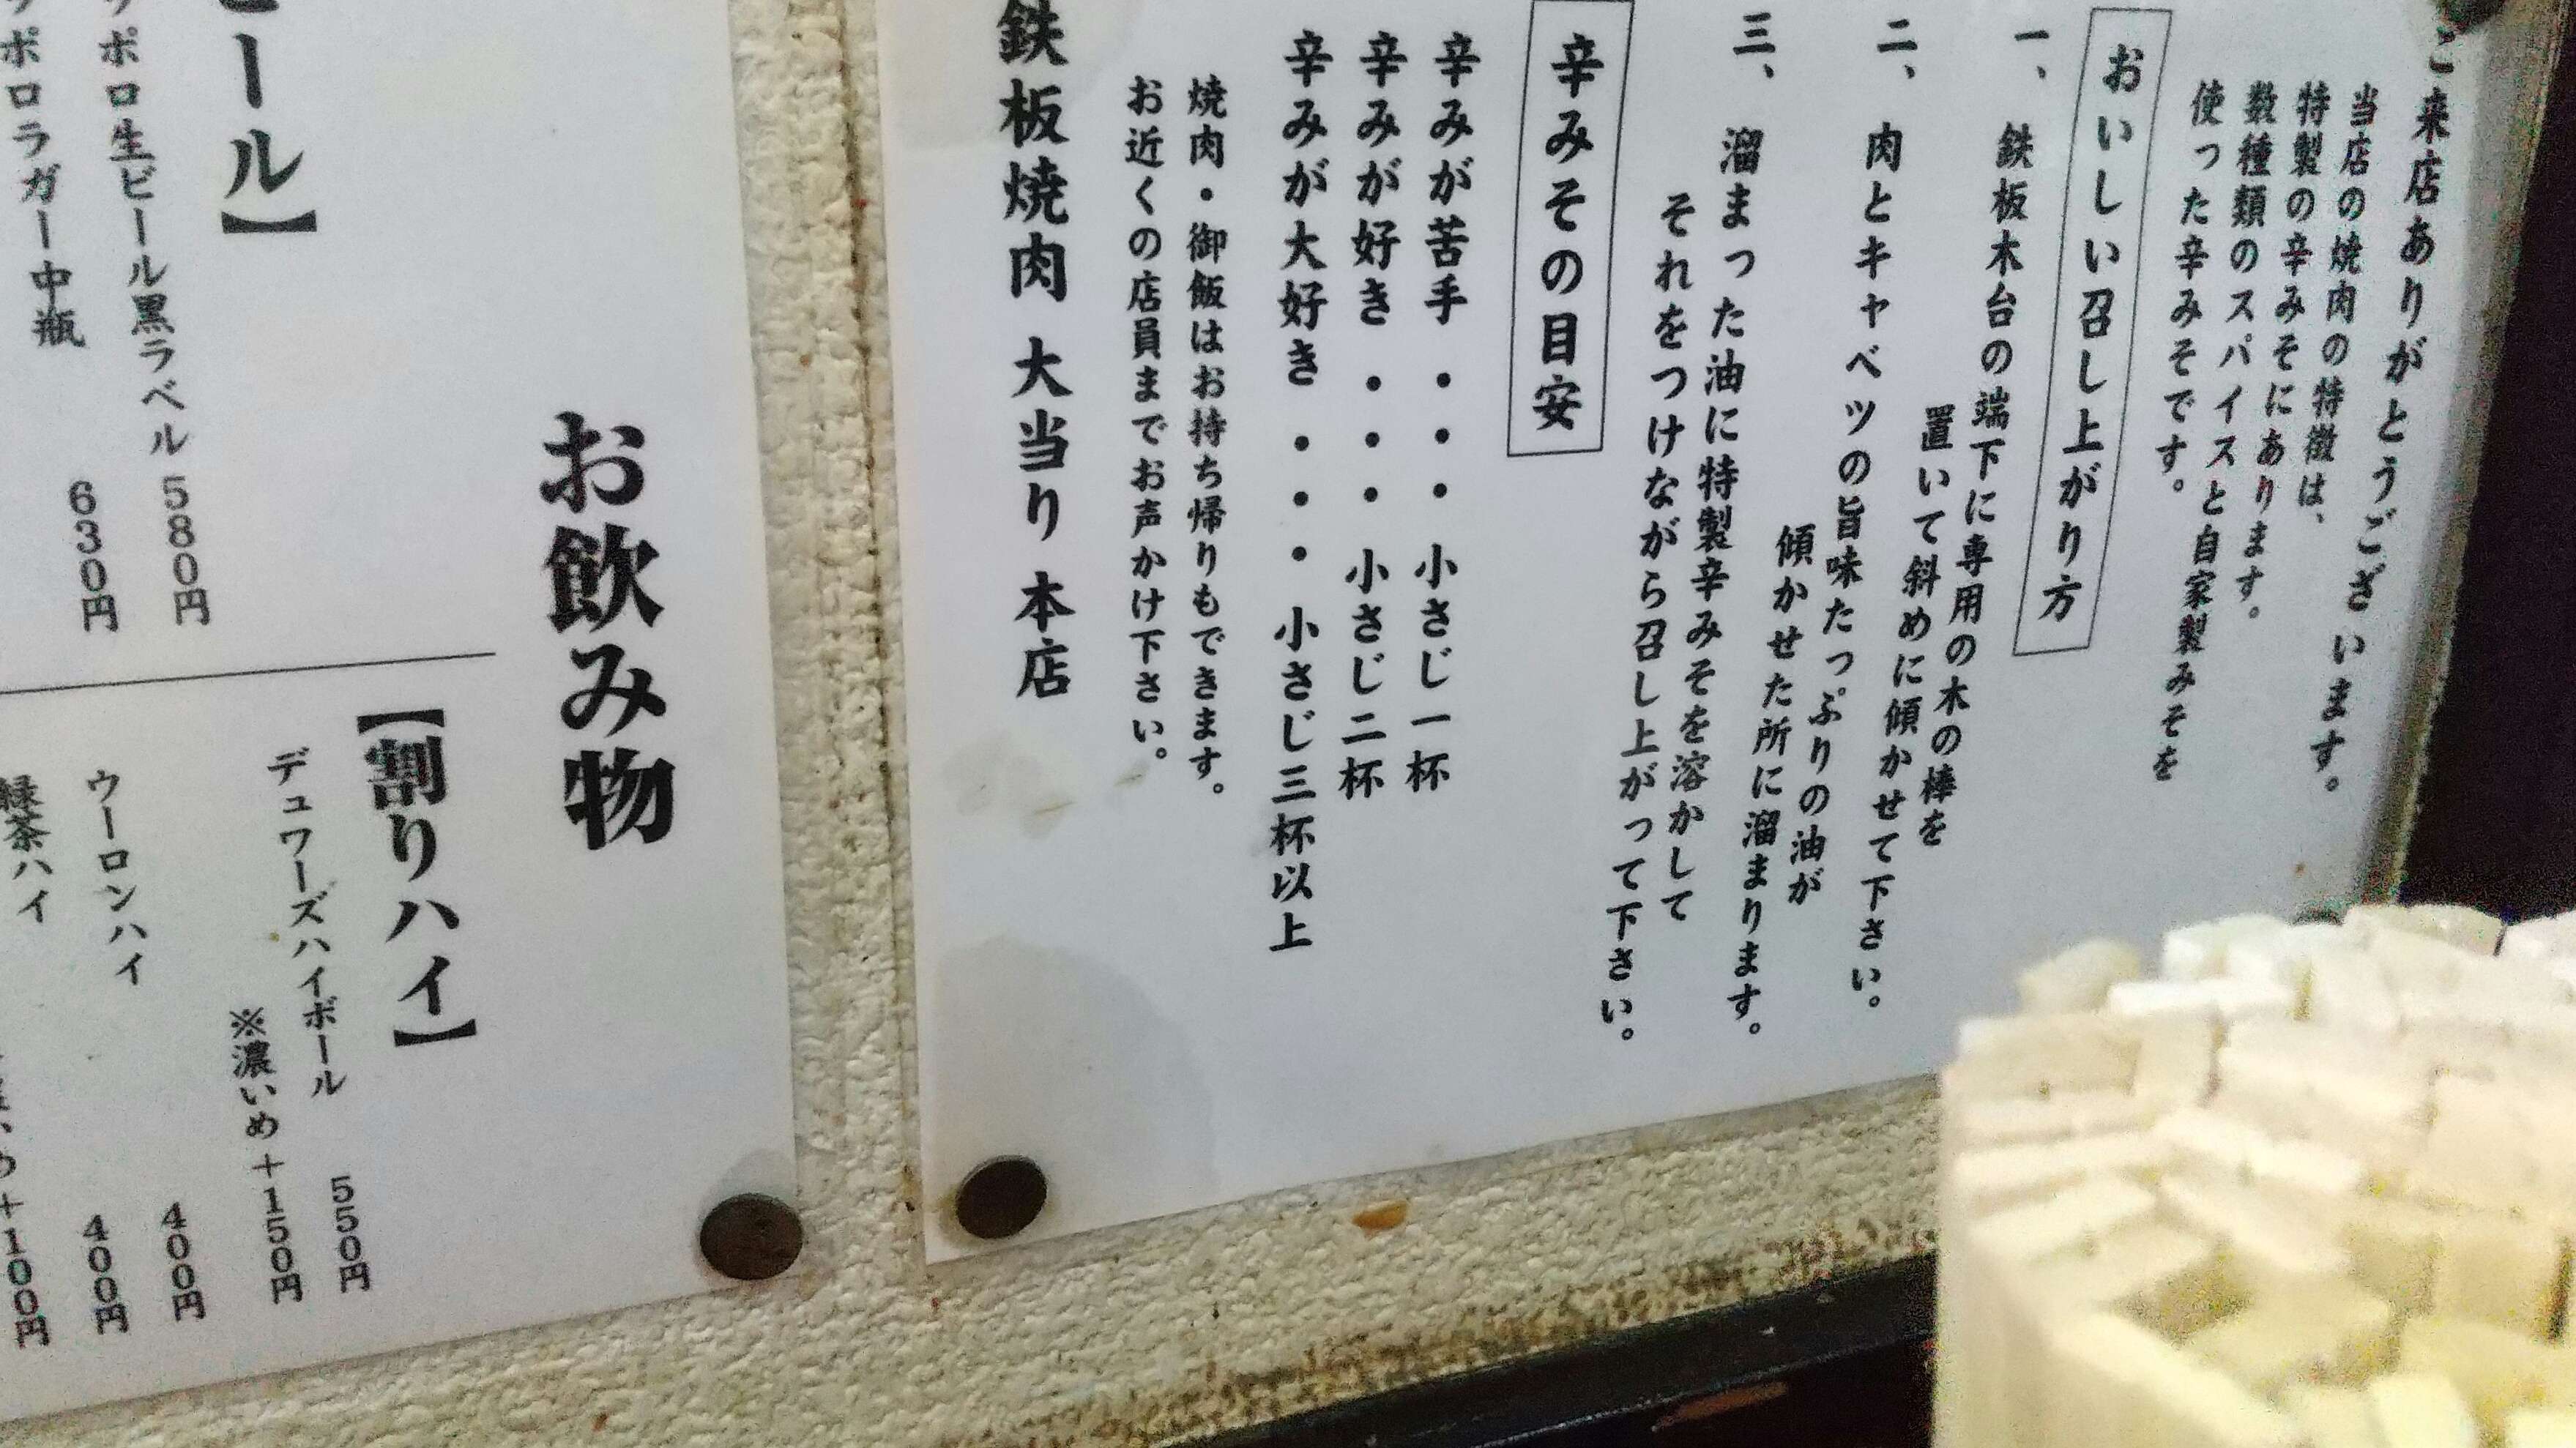 ご来店ありがとうございます。
当店の焼肉の特徴は、
特製の辛みそにあります。
数種類のスパイスと自家製みそを
使った辛みそです。
おいしい召し上がり方
一、鉄板木台の端下に専用の木の棒を
置いて斜めに傾かせて下さい。
二、肉とキャベツの旨味たっぷりの油が
傾かせた所に溜まります。
三、溜まった油に特製辛みそを溶かして
それをつけながら召し上がって下さい。
辛みその目安
辛みが苦手・・・小さじ一杯
辛みが好き・・・小さじ二杯
辛みが大好き・・・小さじ三杯以上
焼肉・御飯はお持ち帰りもできます。
お近くの店員までお声かけ下さい。
鉄板焼肉 大当り 本店
お飲み物
ール】
ポロ生ビール黒ラベル 580円
ポロラガー中瓶 630円
【割りハイ】
デュワーズハイボール 550円
※濃いめ+150円
ウーロンハイ 400円
緑茶ハイ 400円
+100円